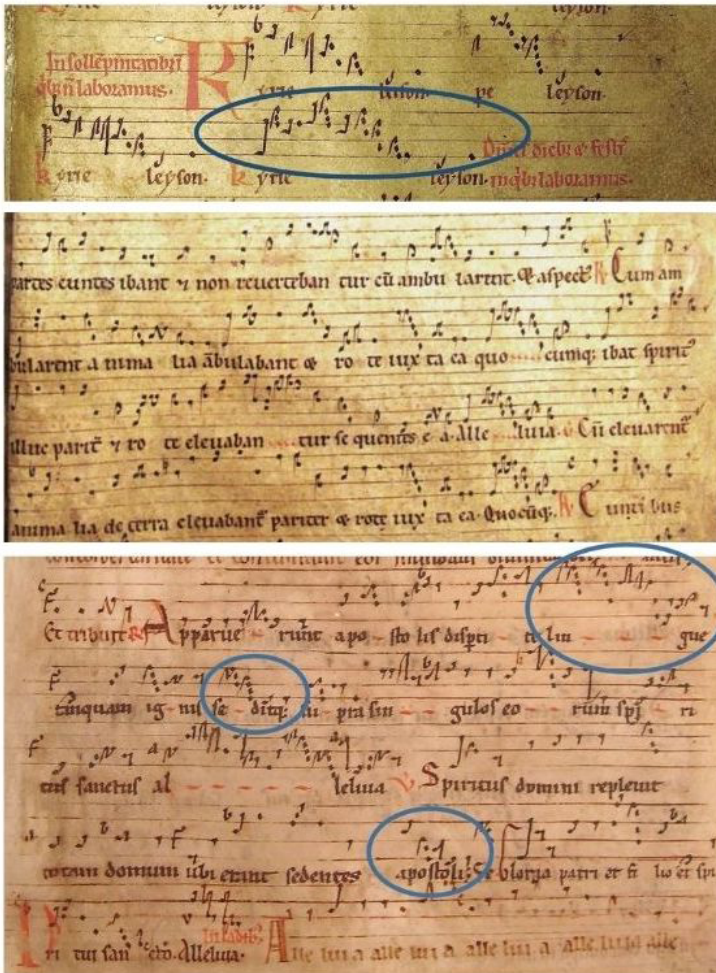 yrie leyson.
In sollēpnitatibꝫ K yrie leyson. pe leyson.
qͥbꝫ ñ laboramus.
kyrie leyson. kyrie leyson.
in qͥbꝫ laboramus.
partes euntes ibant ⁊ non reuerteban tur cū ambu larent. & aspect᷒ R Cum am
bularent a nima lia ābulabant & ro te iux ta ea quo cumqꝫ ibat spirit᷒
illuc parit̄ ⁊ ro te eleuaban tur se quentes e a. Alle luia. v Cū eleuarent᷒
anima lia de terra eleuabant᷒ pariter & rote iux ta ea. Quocūqꝫ. R C
Apparue runt apo sto lis disperti te lin gue
tanquam ig nis se ditqꝫ su pra sin gulos eo rum sp̄s ri
tus sanctus al leluia v Spiritus domini repleuit
totam domum ubi erant sedentes apostoli. Se Gloria patri et fi lio et spi
ri tui san cto. Alleluia. Alle lui a alle lui a alle lui a alle luia alle